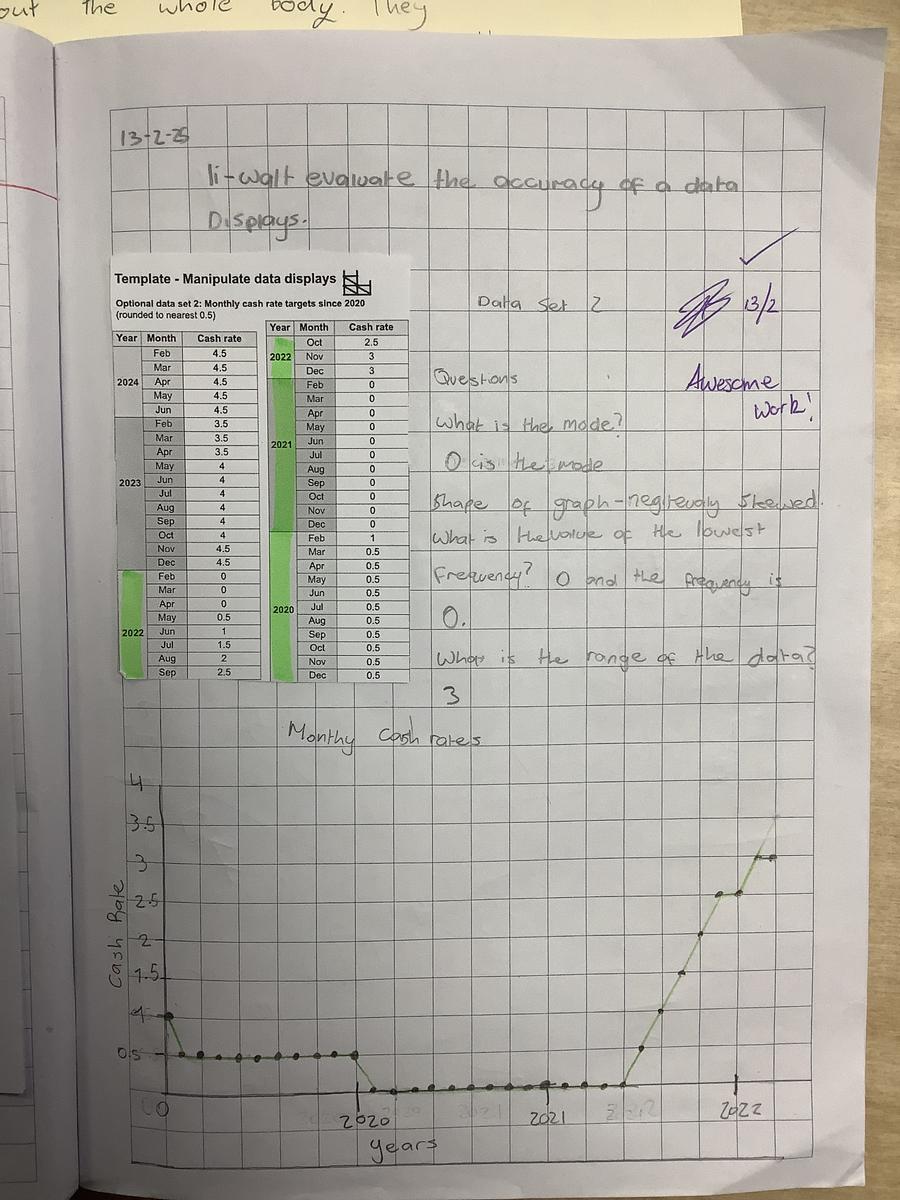 out the whole body. They
13-2-25
li-walt evaluate the accuracy of a data
Displays.
Template - Manipulate data displays
Optional data set 2: Monthly cash rate targets since 2020
(rounded to nearest 0.5)
Year Month Cash rate
2024
Feb 4.5
Mar 4.5
Apr 4.5
May 4.5
Jun 4.5
2023
Feb 3.5
Mar 3.5
Apr 3.5
May 4
Jun 4
Jul 4
Aug 4
Sep 4
Oct 4
Nov 4.5
Dec 4.5
2022
Feb 0
Mar 0
Apr 0
May 0.5
Jun 1
Jul 1.5
Aug 2
Sep 2.5
Year Month Cash rate
2022
Oct 2.5
Nov 3
Dec 3
2021
Feb 0
Mar 0
Apr 0
May 0
Jun 0
Jul 0
Aug 0
Sep 0
Oct 0
Nov 0
Dec 0
2020
Feb 1
Mar 0.5
Apr 0.5
May 0.5
Jun 0.5
Jul 0.5
Aug 0.5
Sep 0.5
Oct 0.5
Nov 0.5
Dec 0.5
Data Set 2
13/2
Awesome
work!
Questions
What is the mode?
0 is the mode
Shape of graph-negitevaly skewed.
What is the value of the lowest
Frequency? 0 and the frequency is
0.
What is the range of the data?
3
Monthy Cash rates
Cash Rate
4
3.5
3
2.5
2
1.5
1
0.5
0
2020 2021 2022
years